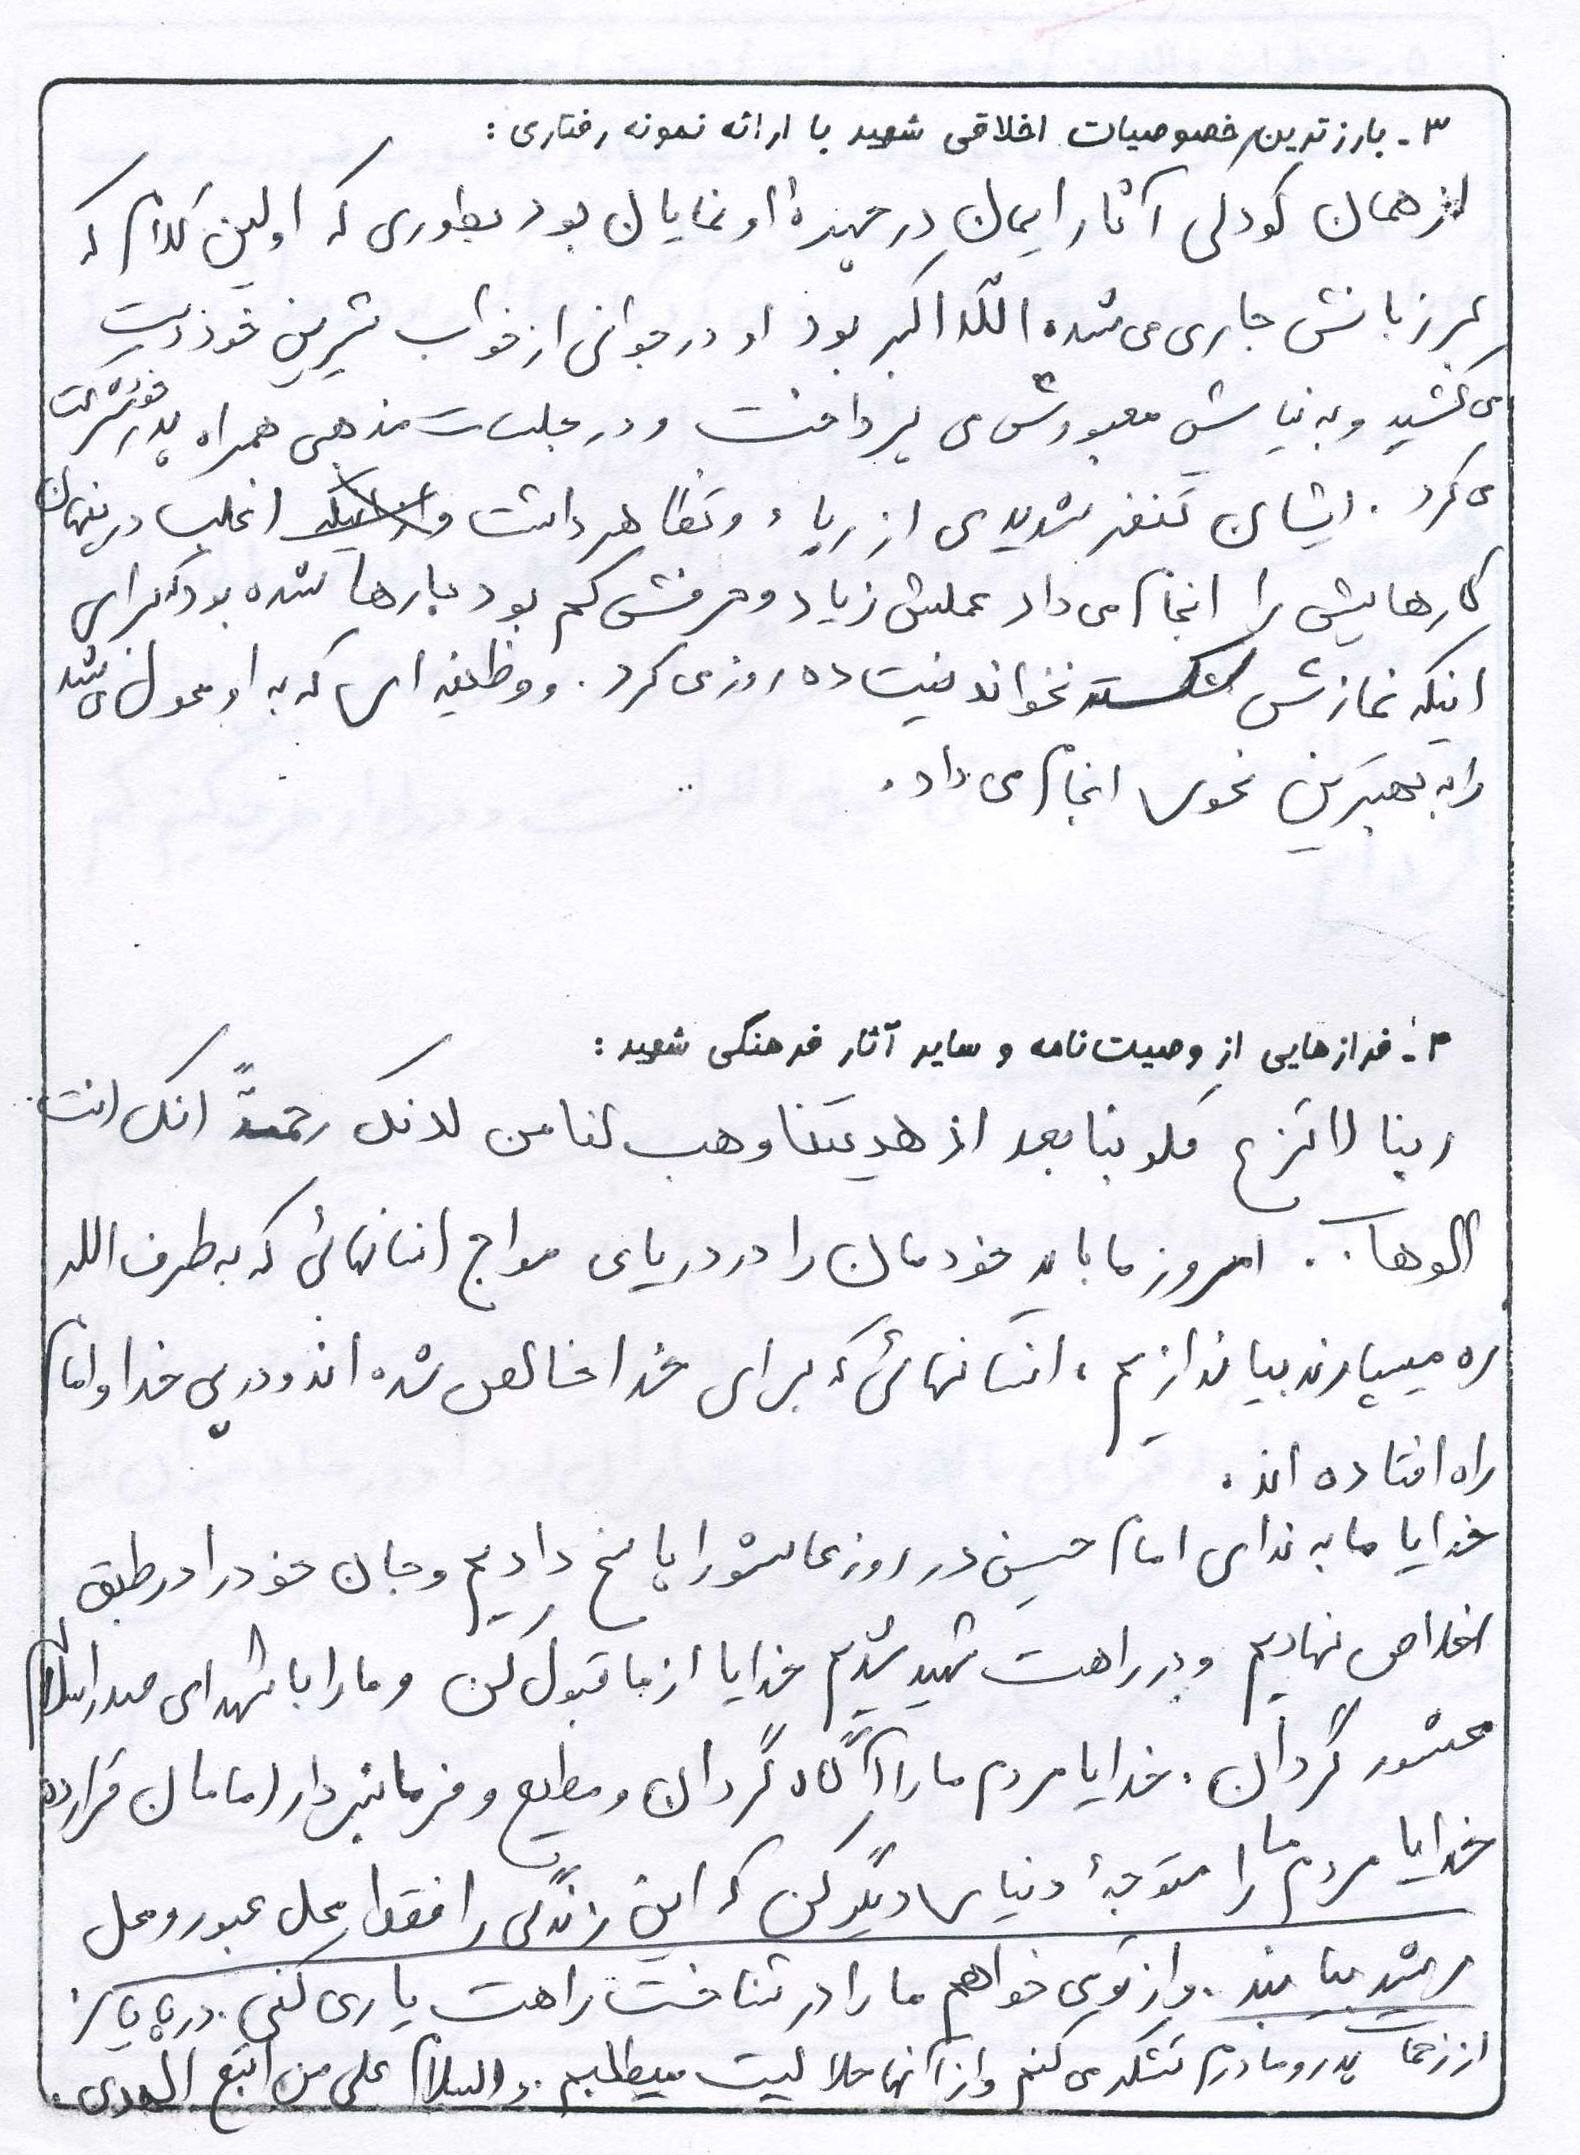 ۳- بارزترین خصوصیات اخلاقی شهید با ارائه نمونه رفتاری :
از همان کودکی آثار ایمان در چهرهٔ او نمایان بود بطوری که اولین کلام که
بر زبانش جاری می شده اللّه اکبر بود او در جوانی از خواب شیرین خود دست
می کشید و به نیایش معبودش می پرداخت و در جلسات مذهبی همراه پدر شرکت
می کرد . ایشان تنفر شدیدی از ریاء و تظاهر داشت و اغلب در پنهان
کارهایش را انجام می داد عملش زیاد و حرفش کم بود بارها شده بود که برای
اینکه نمازش شکسته نخواند نیت ده روز می کرد . و وظیفه ای که به او محول می شد
را به بهترین نحوی انجام می داد .
۴- فرازهایی از وصیت نامه و سایر آثار فرهنگی شهید :
ربنا لا تزغ قلوبنا بعد اذ هدیتنا و هب لنا من لدنک رحمةً انک انت
الوهاب . امروز ما باید خودمان را در دریای مواج انسانهائی که به طرف الله
ره میسپارند بیاندازیم ، انسانهائی که برای خدا خالص شده اند و در پی خدا و امام
راه افتاده اند .
خدایا ما به ندای امام حسین در روز عاشورا پاسخ دادیم و جان خود را در طبق
اخلاص نهادیم و در راهت شهید شدیم خدایا از ما قبول کن و ما را با شهدای صدر اسلام
محشور گردان . خدایا مردم ما را آگاه گردان و مطیع و فرمانبردار امامان قرار ده
خدایا مردم ما را متوجهٔ دنیای دیگر کن که این زندگی را فقط محل عبور و محل
رشد بیابند . و از تو می خواهم ما را در شناخت راهت یاری کنی . در پایان
از زحمات پدر و مادرم تشکر می کنم و از آنها حلالیت میطلبم . والسلام علی من اتبع الهدی .